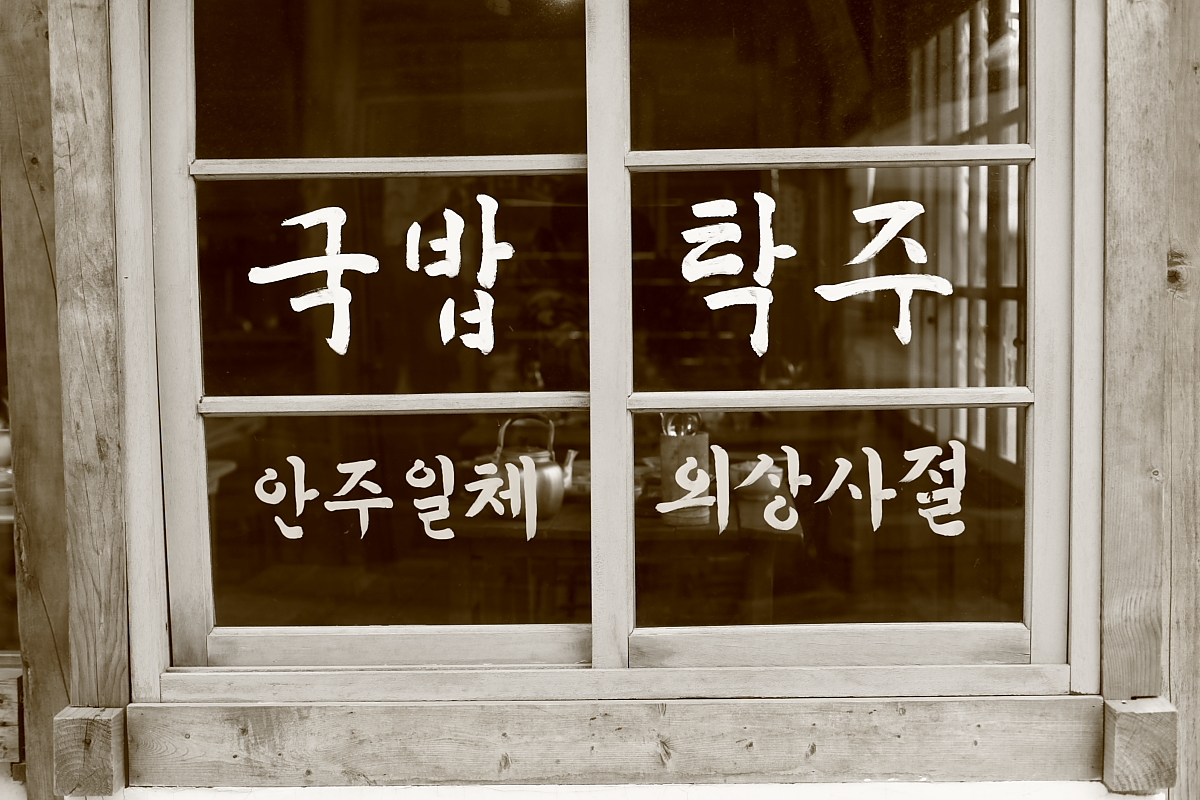 국밥 탁주
안주일체 외상사절